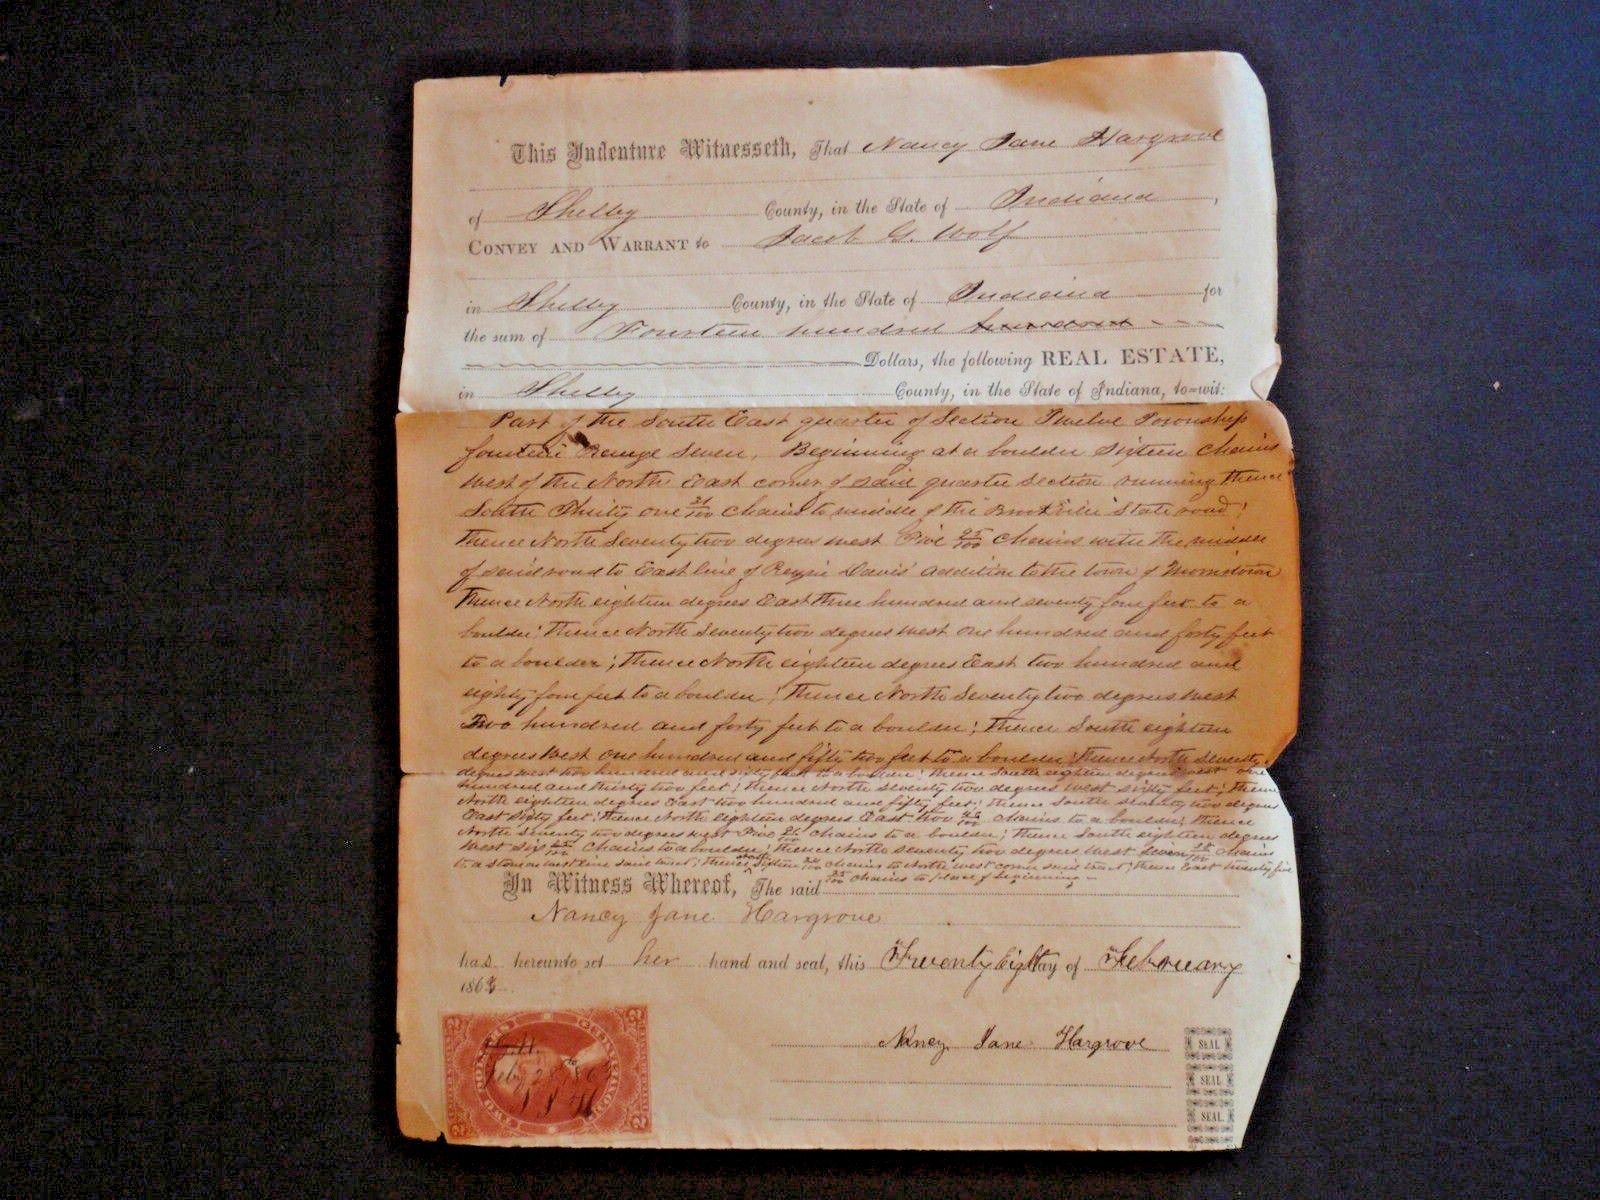 This Indenture Witnesseth, That Nancy Jane Hargrove
of Shelby County, in the State of Indiana,
CONVEY AND WARRANT to Jacob G. Wolf
in Shelby County, in the State of Indiana for
the sum of Fourteen hundred
Dollars, the following REAL ESTATE,
in Shelby County, in the State of Indiana, to=wit:
Part of the South East quarter of Section Twelve Township
fourteen Range Seven, Beginning at a boulder Sixteen Chains
West of the North East corner of said quarter Section running thence
South Thirty one 21/100 Chains to middle of the State road;
Thence North Seventy two degrees West Five 95/100 Chains with the middle
of said road to East line of Davis' Addition to the town of Morristown
Thence North eighteen degrees East three hundred and seventy four feet to a
boulder; Thence North Seventy two degrees West one hundred and forty feet
to a boulder; Thence North eighteen degrees East two hundred and
eighty four feet to a boulder; Thence North Seventy two degrees West
Two hundred and forty feet to a boulder; Thence South eighteen
degrees West one hundred and fifty two feet to a boulder; Thence North Seventy
degrees West two hundred and sixty feet to a boulder; Thence South eighteen degrees West one
hundred and thirty two feet; Thence North seventy two degrees West sixty feet; Thence
North eighteen degrees East two hundred and fifty feet; Thence South seventy two degrees
East Sixty feet; Thence North eighteen degrees East two chains to a boulder; Thence
North Seventy two degrees West Five chains to a boulder; Thence South eighteen degrees
West Six Chains to a boulder; Thence North seventy two degrees West Chains
to a stone on West line said tract; Thence North Sixteen chains to North west corner said tract; Thence East twenty five
25/100 Chains to place of beginning
In Witness Whereof, The said
Nancy Jane Hargrove
has hereunto set her hand and seal, this Twenty Eight day of February
186
Nancy Jane Hargrove SEAL
SEAL
SEAL
2 2
Feby 28th 186
2 2